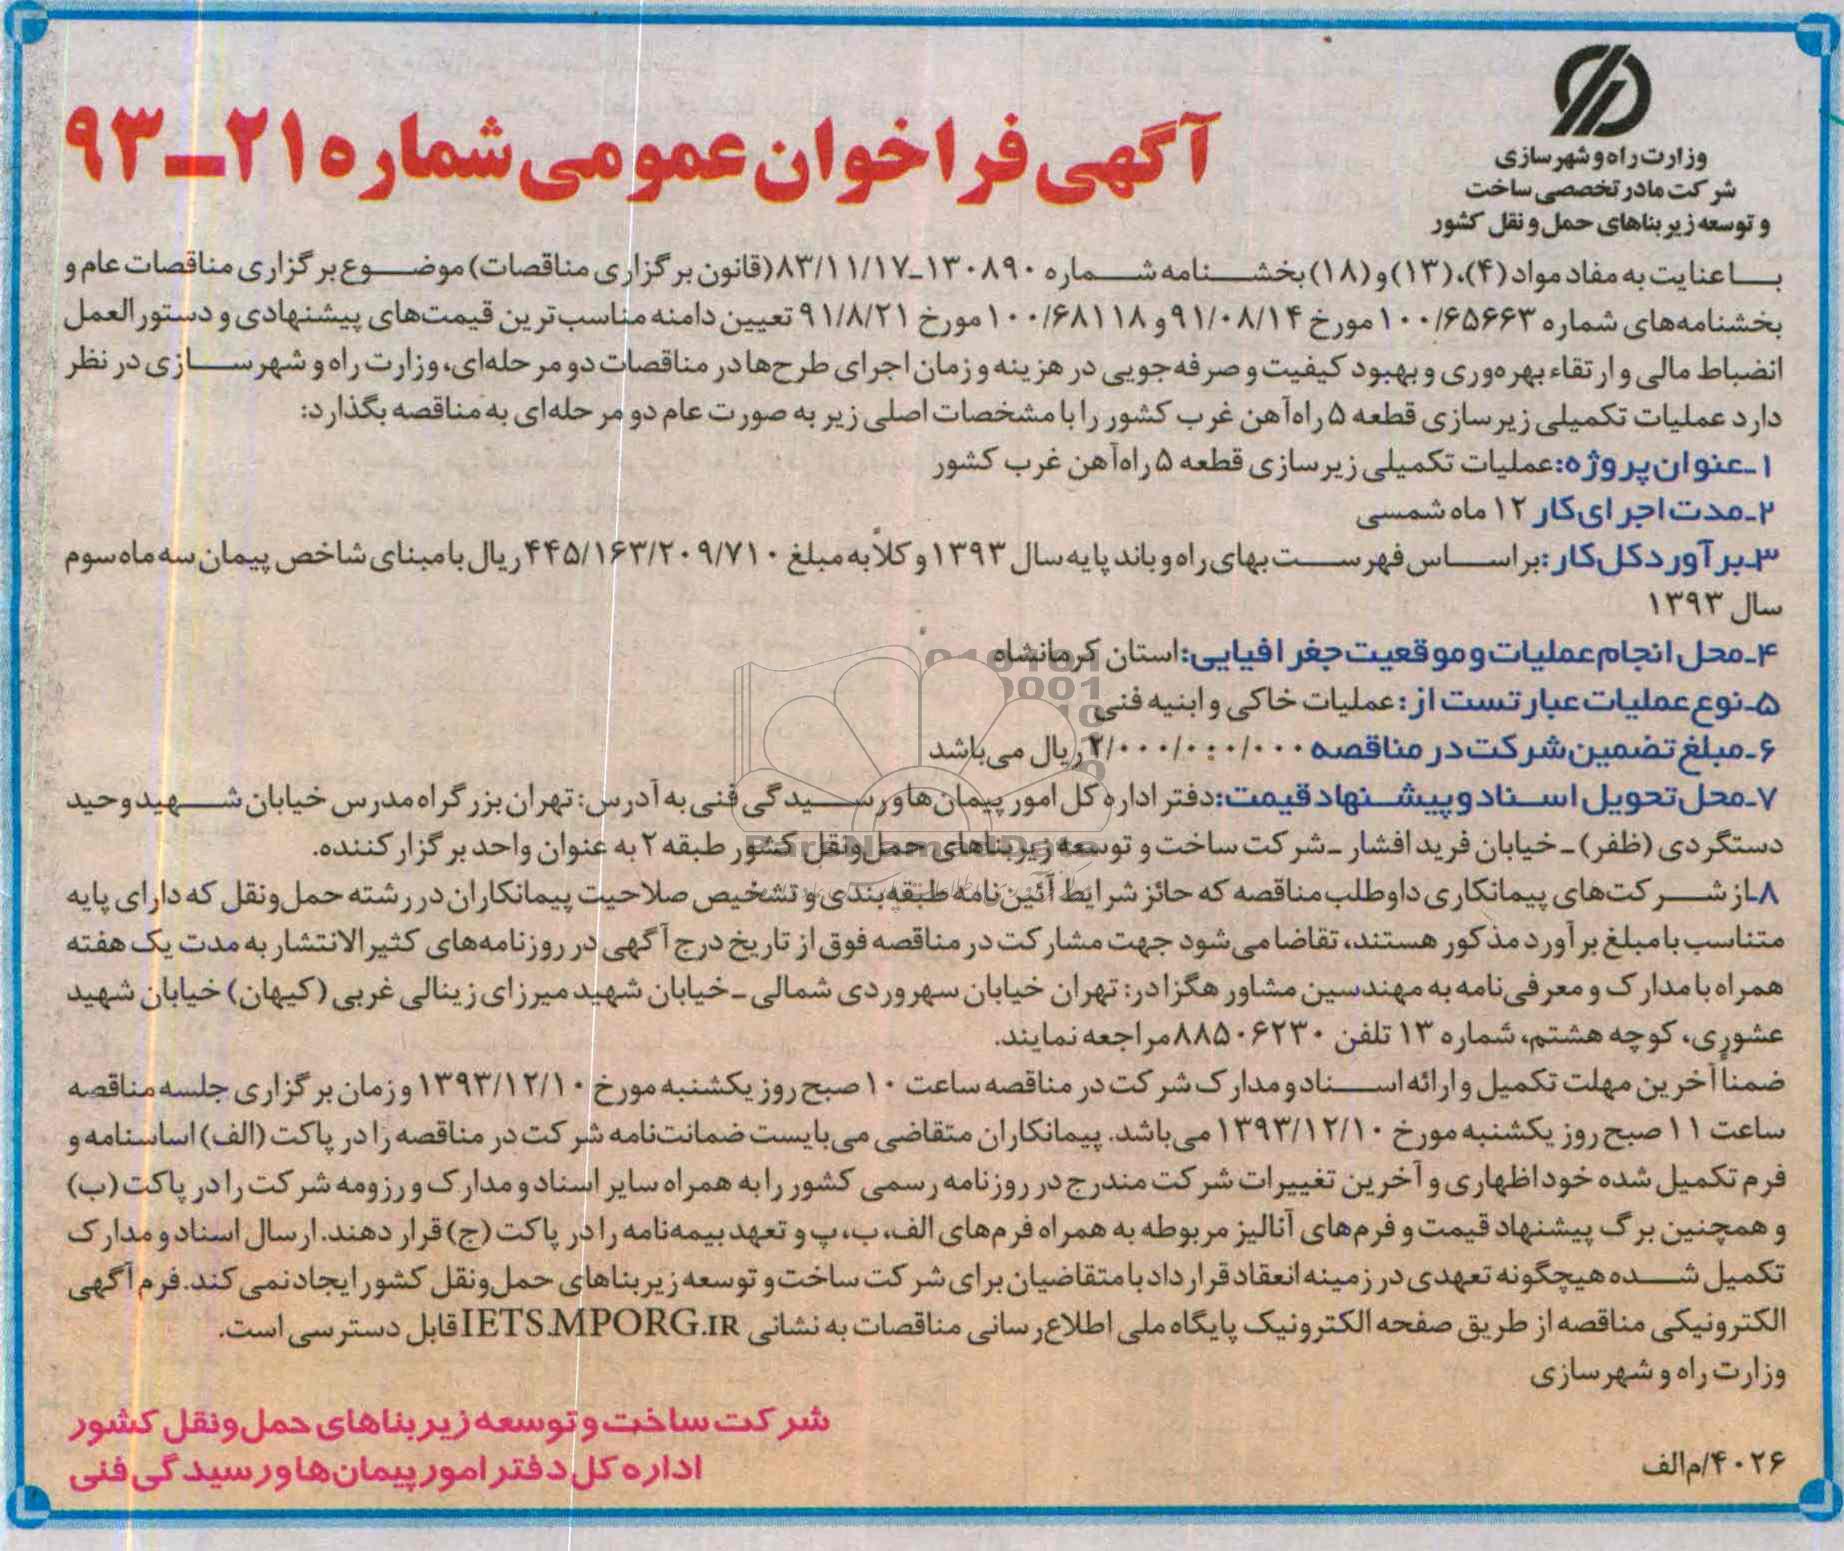 وزارت راه و شهرسازی
شرکت مادر تخصصی ساخت
و توسعه زیربناهای حمل و نقل کشور
آگهی فراخوان عمومی شماره ۲۱-۹۳
با عنایت به مفاد مواد (۴)، (۱۳) و (۱۸) بخشنامه شماره ۱۳۰۸۹۰-۸۳/۱۱/۱۷ (قانون برگزاری مناقصات) موضوع برگزاری مناقصات عام و
بخشنامه‌های شماره ۱۰۰/۶۵۶۶۳ مورخ ۹۱/۰۸/۱۴ و ۱۰۰/۶۸۱۱۸ مورخ ۹۱/۸/۲۱ تعیین دامنه مناسب‌ترین قیمت‌های پیشنهادی و دستورالعمل
انضباط مالی و ارتقاء بهره‌وری و بهبود کیفیت و صرفه‌جویی در هزینه و زمان اجرای طرح‌ها در مناقصات دو مرحله‌ای، وزارت راه و شهرسازی در نظر
دارد عملیات تکمیلی زیرسازی قطعه ۵ راه‌آهن غرب کشور را با مشخصات اصلی زیر به صورت عام دو مرحله‌ای به مناقصه بگذارد:
۱-عنوان پروژه: عملیات تکمیلی زیرسازی قطعه ۵ راه‌آهن غرب کشور
۲-مدت اجرای کار ۱۲ ماه شمسی
۳-برآورد کل کار: بر اساس فهرست بهای راه و باند پایه سال ۱۳۹۳ و کلاً به مبلغ ۴۴۵/۱۶۳/۲۰۹/۷۱۰ ریال با مبنای شاخص پیمان سه ماه سوم
سال ۱۳۹۳
۴-محل انجام عملیات و موقعیت جغرافیایی: استان کرمانشاه
۵-نوع عملیات عبارتست از: عملیات خاکی و ابنیه فنی
۶-مبلغ تضمین شرکت در مناقصه ۲/۰۰۰/۰۰۰/۰۰۰ ریال می‌باشد
۷-محل تحویل اسناد و پیشنهاد قیمت: دفتر اداره کل امور پیمان‌ها و رسیدگی فنی به آدرس: تهران بزرگراه مدرس خیابان شهید وحید
دستگردی (ظفر) - خیابان فرید افشار - شرکت ساخت و توسعه زیربناهای حمل‌ونقل کشور طبقه ۲ به عنوان واحد برگزار کننده.
۸-از شرکت‌های پیمانکاری داوطلب مناقصه که حائز شرایط آئین‌نامه طبقه‌بندی و تشخیص صلاحیت پیمانکاران در رشته حمل‌ونقل که دارای پایه
متناسب با مبلغ برآورد مذکور هستند، تقاضا می‌شود جهت مشارکت در مناقصه فوق از تاریخ درج آگهی در روزنامه‌های کثیرالانتشار به مدت یک هفته
همراه با مدارک و معرفی‌نامه به مهندسین مشاور هگزا در: تهران خیابان سهروردی شمالی - خیابان شهید میرزای زینالی غربی (کیهان) خیابان شهید
عشوری، کوچه هشتم، شماره ۱۳ تلفن ۸۸۵۰۶۲۳۰ مراجعه نمایند.
ضمنا آخرین مهلت تکمیل و ارائه اسناد و مدارک شرکت در مناقصه ساعت ۱۰ صبح روز یکشنبه مورخ ۱۳۹۳/۱۲/۱۰ و زمان برگزاری جلسه مناقصه
ساعت ۱۱ صبح روز یکشنبه مورخ ۱۳۹۳/۱۲/۱۰ می‌باشد. پیمانکاران متقاضی می‌بایست ضمانت‌نامه شرکت در مناقصه را در پاکت (الف) اساسنامه و
فرم تکمیل شده خوداظهاری و آخرین تغییرات شرکت مندرج در روزنامه رسمی کشور را به همراه سایر اسناد و مدارک و رزومه شرکت را در پاکت (ب)
و همچنین برگ پیشنهاد قیمت و فرم‌های آنالیز مربوطه به همراه فرم‌های الف، ب، پ و تعهد بیمه‌نامه را در پاکت (ج) قرار دهند. ارسال اسناد و مدارک
تکمیل شده هیچگونه تعهدی در زمینه انعقاد قرارداد با متقاضیان برای شرکت ساخت و توسعه زیربناهای حمل‌ونقل کشور ایجاد نمی‌کند. فرم آگهی
الکترونیکی مناقصه از طریق صفحه الکترونیک پایگاه ملی اطلاع‌رسانی مناقصات به نشانی IETS.MPORG.IR قابل دسترسی است.
وزارت راه و شهرسازی
شرکت ساخت و توسعه زیربناهای حمل‌ونقل کشور
اداره کل دفتر امور پیمان‌ها و رسیدگی فنی
۴۰۲۶/م الف